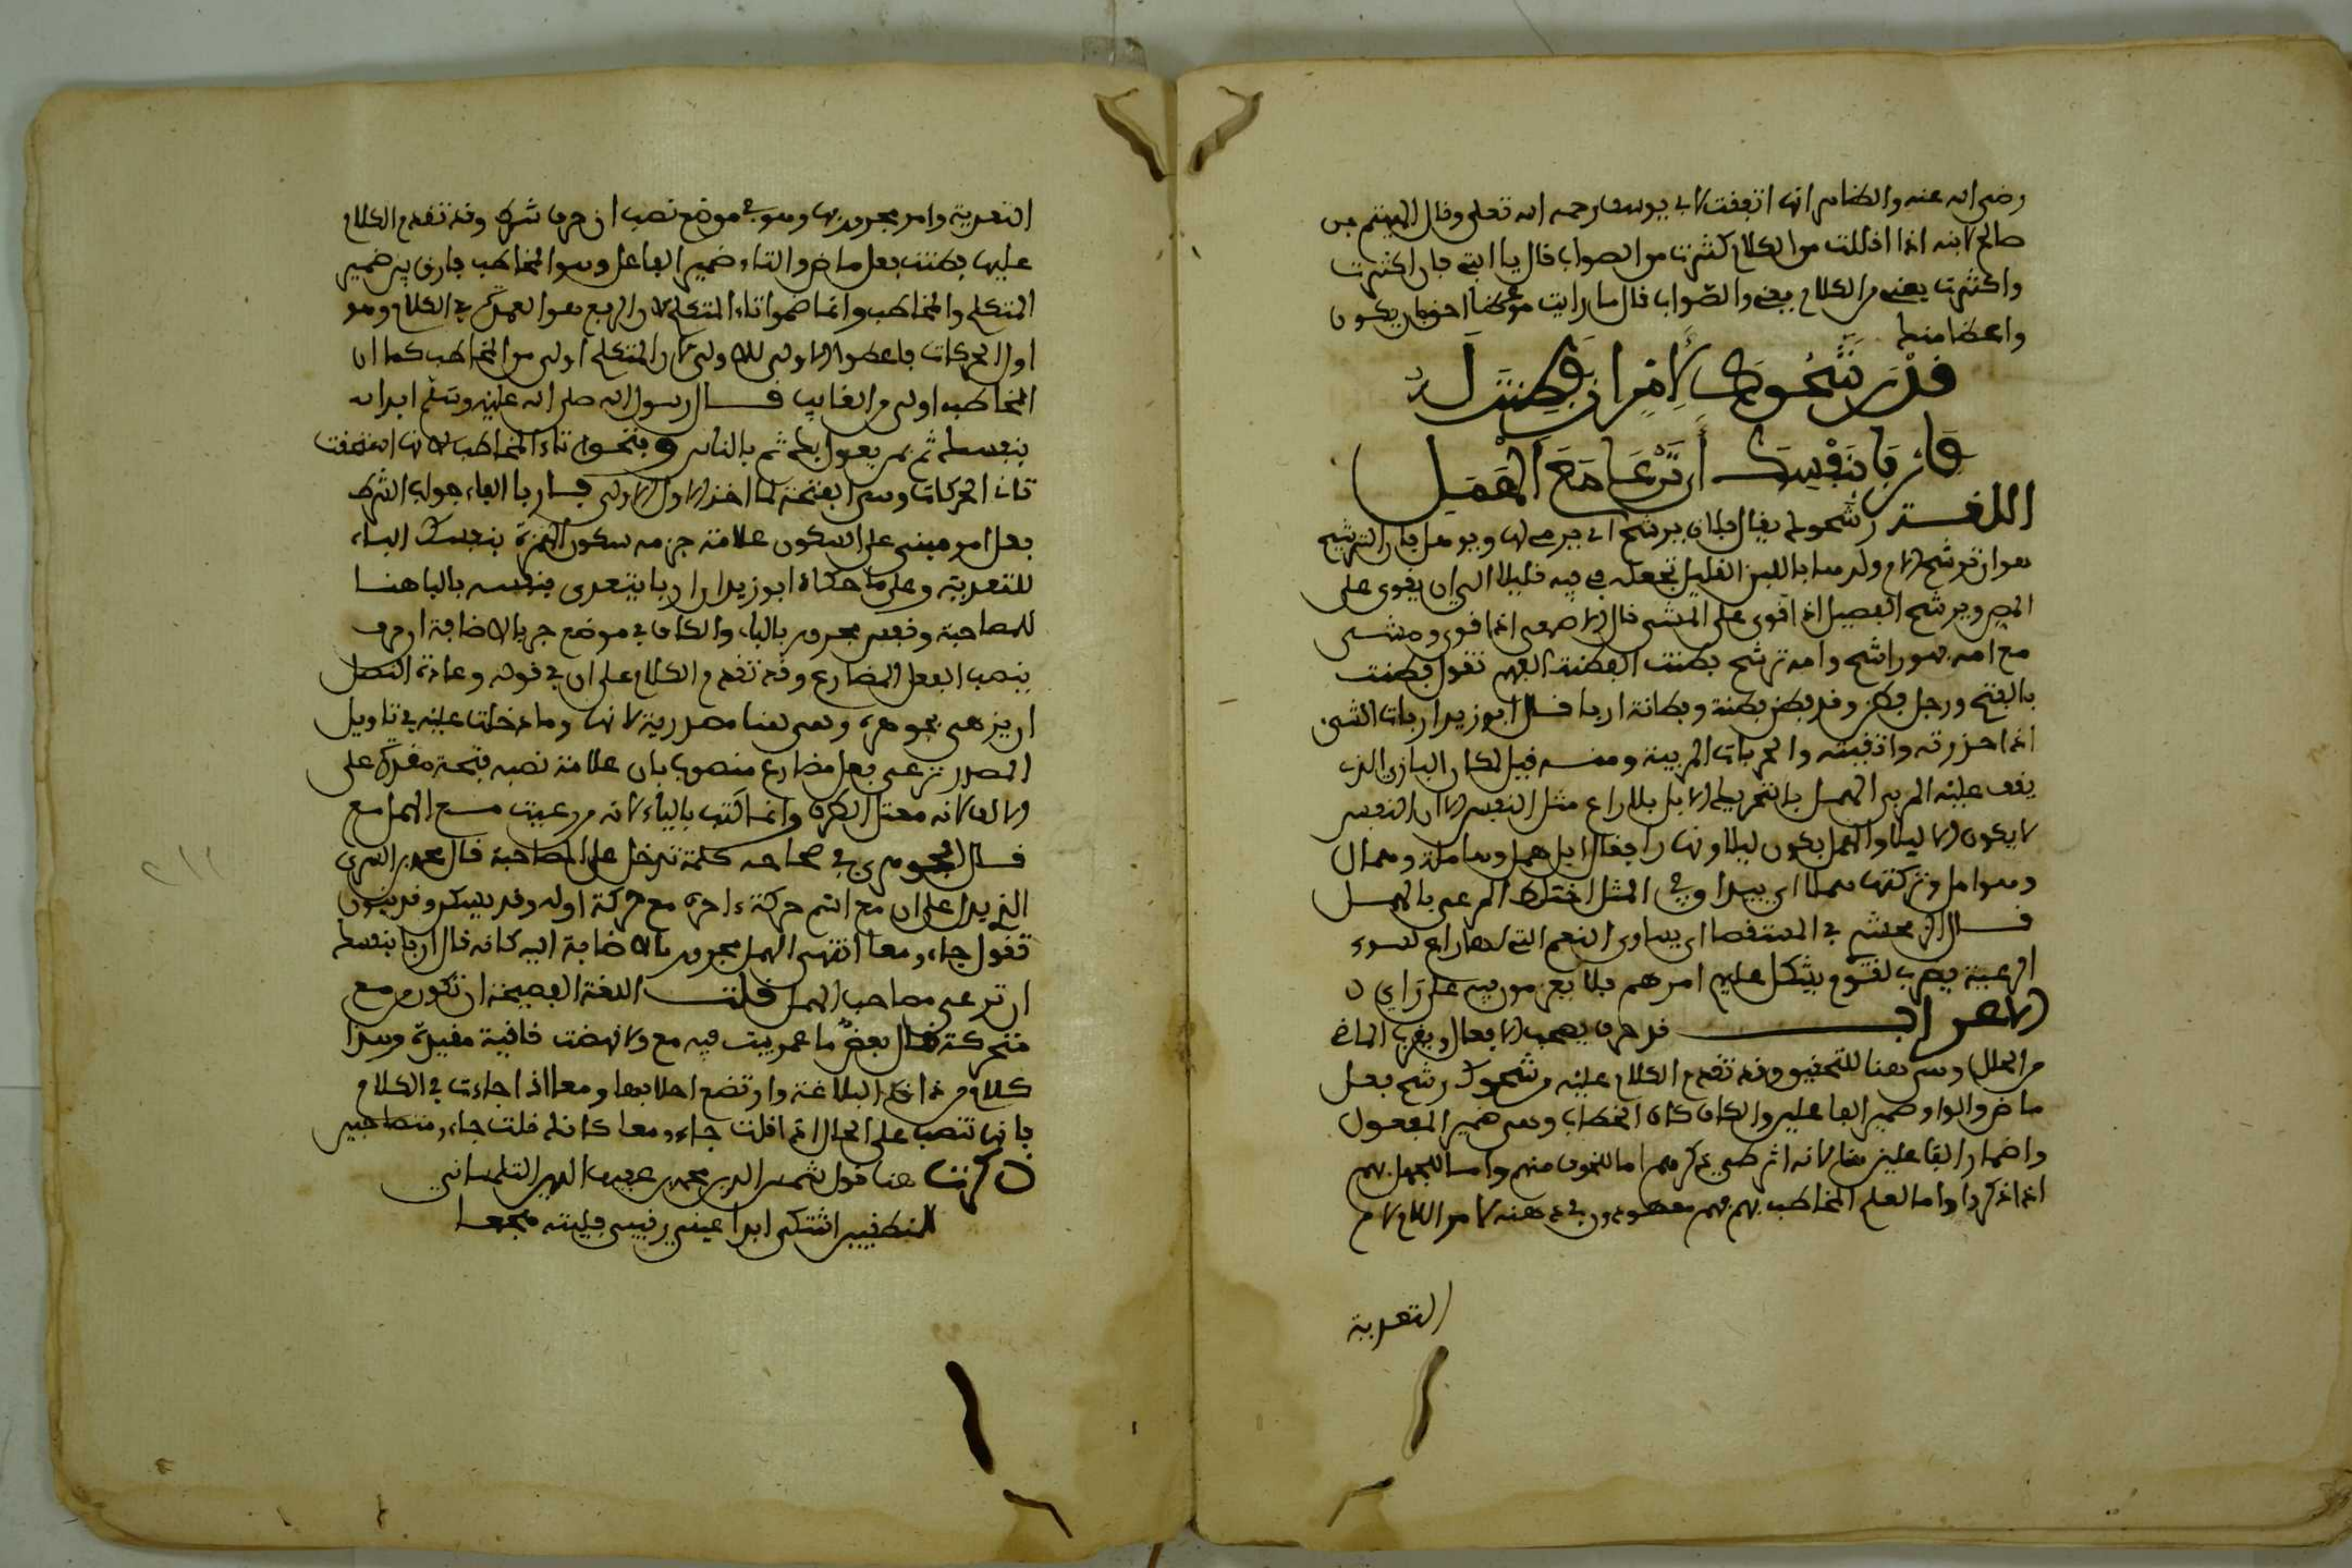 رضي الله عنه والظاهر انها اتفقت لابي يوسف رحمه الله تعلى وقال الهيثم بن
صالح لابنه اذا اقللت من الكلام كثرت من الصواب قال يا ابتي فان اكثرت
واكثرت يعني من الكلام يعني والصواب قال ما رايت موعظا احق بان يكون
واعظا منك
قد رشحوك لأمر إن فطنت له
فاربأ بنفسك أن ترعى مع الهمل
اللغة رشحوك يقال فلان يرشح اي يربى لها ويوهل فان الترشيح
هو ان ترشح الام ولدها باللبن القليل تجعله في فيه قليلا الى ان يقوى على
المص ويرشح الفصيل اذا قوي على المشي قال الاصمعي اذا قوي ومشى
مع امه فهو راشح وامه ترشح فطنت الفطنة الفهم تقول فطنت
بالفتح ورجل فطن وقد فطن فطنة وفطانة اربا قال ابو زيد اربات الشيء
اذا حذرته واتقيته والمربات المربية ومنه قيل لمكان البازي الذي
يقف عليه المربي الهمل بالتحريك الابل بلا راع مثل النفش الا ان النفش
لا يكون الا ليلا والهمل يكون ليلا ونهارا فيقال ابل همل وهاملة وهمال
وهوامل وتركتها هملا اي سدا وفي المثل اختلط المرعي بالهمل
قال الزمخشري في المستقصا اي يساوى النعم التي لها راع لسوء
الرعية يضرب لقوم يشكل عليهم امرهم فلا يعزمون فيه على راي
الاعراب قد حرف يصحب الافعال ويقرب الماضي
من الحال وهي هنا للتحقيق وقد تقدم الكلام عليه رشحوك رشح فعل
ماض والواو ضمير الفاعلين والكاف كاف الخطاب وهي ضمير المفعول
واضمار الفاعلين هنا لانه اثر طي ذكرهم اما للخوف منهم واما للجهل بهم
اذا ذكروا واما لعلم المخاطب بهم فهم معهودون في ذهنه لامر اللام لام
التعدية
التعدية وامر مجرور بها وهو في موضع نصب ان حرف شرط وقد تقدم الكلام
عليها فطنت فعل ماض والتاء ضمير الفاعل وهو المخاطب فارق بين ضمير
المتكلم والمخاطب وانما ضموا تاء المتكلم لان الرفع هو العمدة في الكلام وهو
اول الحركات فاعطوا الاولى للاولى لان المتكلم اولى من المخاطب كما ان
المخاطب اولى من الغايب قال رسول الله صلى الله عليه وسلم ابدا
بنفسك ثم بمن يعول بك ثم بالناس وفتحوا تاء المخاطب لانها استحقت
ثاني الحركات وهي الفتحة لما اخذ الاول الاولى فاربا الفاء جواب الشرط
فعل امر مبني على السكون علامة جزمه سكون الهمزة بنفسك الباء
للتعدية وعلى ما حكاه ابو زيد ان اربا يتعدى بنفسه بالبا هنا
للمصاحبة ونفس مجرور بالباء والكاف في موضع جر بالاضافة ان حرف
ينصب الفعل المضارع وقد تقدم الكلام على ان في قوله وعادة النصل
ان يزهى بجوهره وهي هنا مصدرية لانها وما دخلت عليه في تاويل
المصدر ترعى فعل مضارع منصوب بان علامة نصبه فتحة مقدرة على
الالف لانه معتل الطرف وانما كتب بالياء لانه من رعيت مع الهمل مع
قال الجوهري في صحاحه كلمة تدخل على المصاحبة قال محمد بن السري
الذي يدل على ان مع اسم حركة ءاخره مع حركة اوله وقد يسكن وقد ينون
تقول جاءو معا انتهى الهمل مجرور بالاضافة اليه كانه قال اربا بنفسك
ان ترعى مصاحب الهمل قلت اللغة الفصيحة ان تكون مع
متحركة قال بعضهم ما عمر بيت فيه مع ولا نهضت قافية مقيدة وهذا
كلام من ذاق البلاغة وارتضع احلابها ومعا اذا جاءت في الكلام
فانها تنصب على الحال اذا قلت جاءو معا كانك قلت جاءو متصاحبين
ذكرت هنا قول شمس الدين محمد بن عفيف الدين التلمساني
اشتكى ابدا عيني رقيبي فليته معا